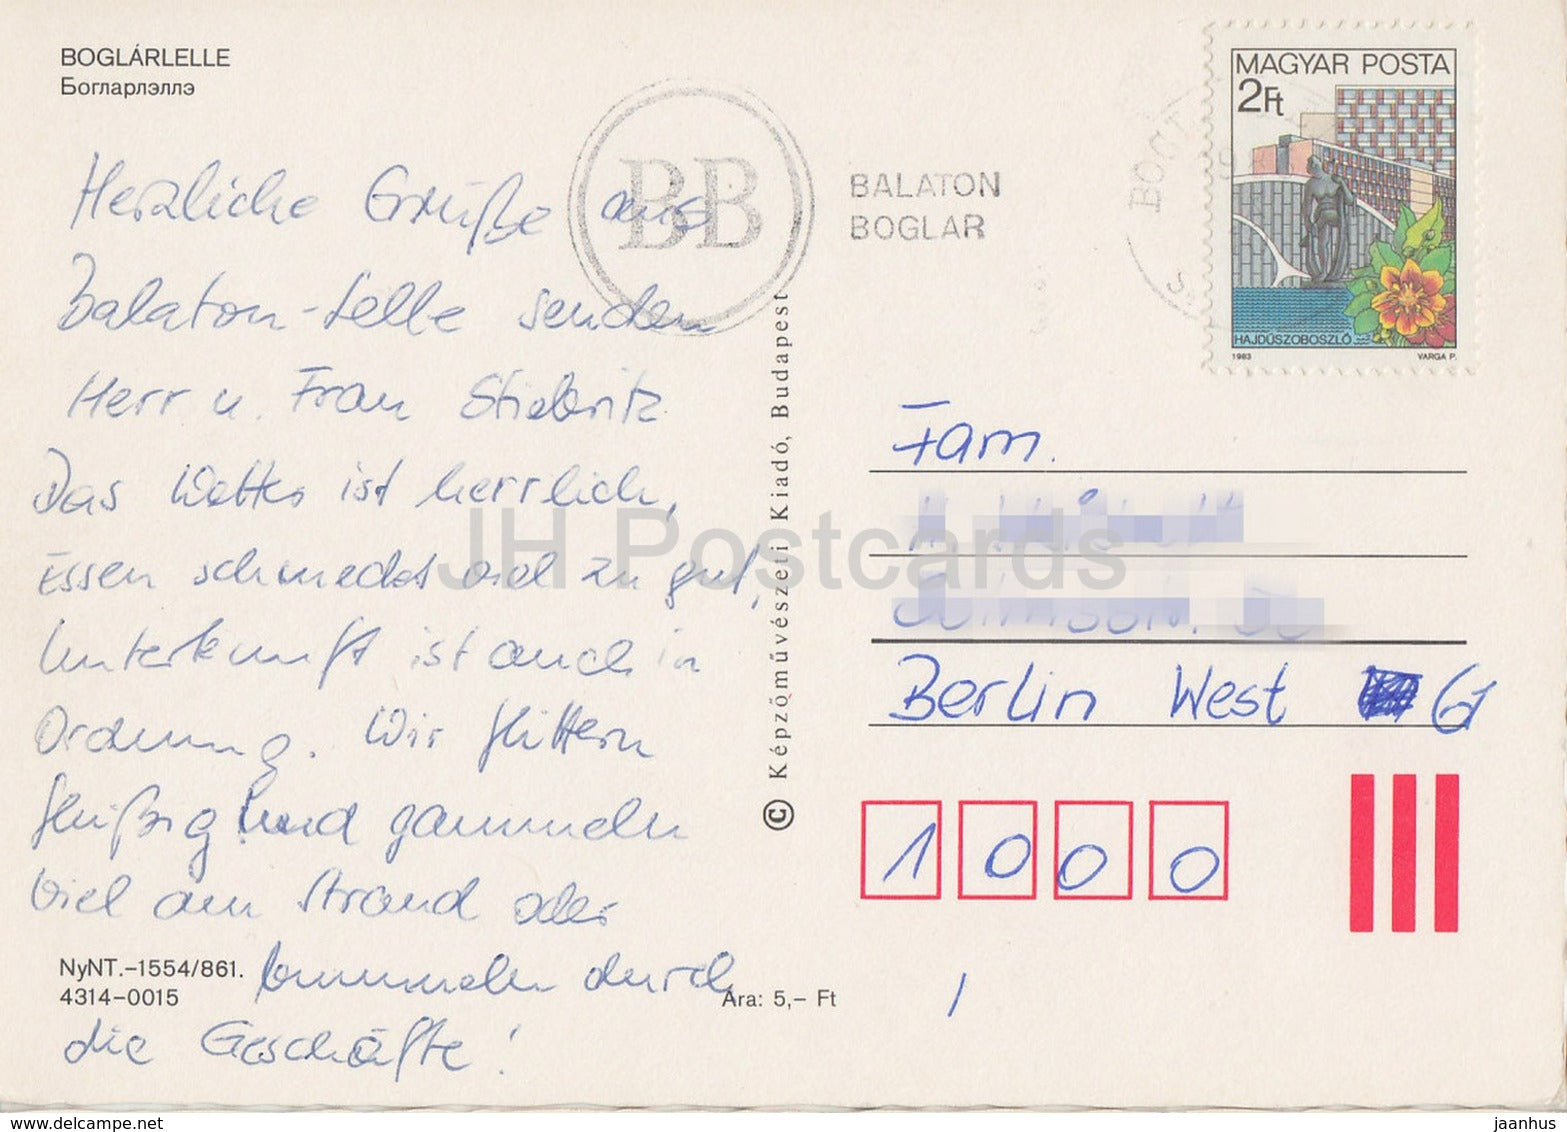 BOGLÁRLELLE
Богларлэллэ
Herzliche Grüße aus
Balaton-Lelle senden
Herr u. Frau Stiebritz
Das Wetter ist herrlich,
Essen schmeckt viel zu gut,
Unterkunft ist auch in
Ordnung. Wir futtern
fleißig und gammeln
viel am Strand oder
bummeln durch
die Geschäfte!
NyNT.-1554/861.
4314-0015
Ára: 5,- Ft
© Képzőművészeti Kiadó, Budapest
BB
BALATON
BOGLAR
MAGYAR POSTA
2Ft
HAJDÚSZOBOSZLÓ
1983 VARGA P.
Fam.
Berlin West 61
1000
JH Postcards
www.delcampe.net
jaanhus